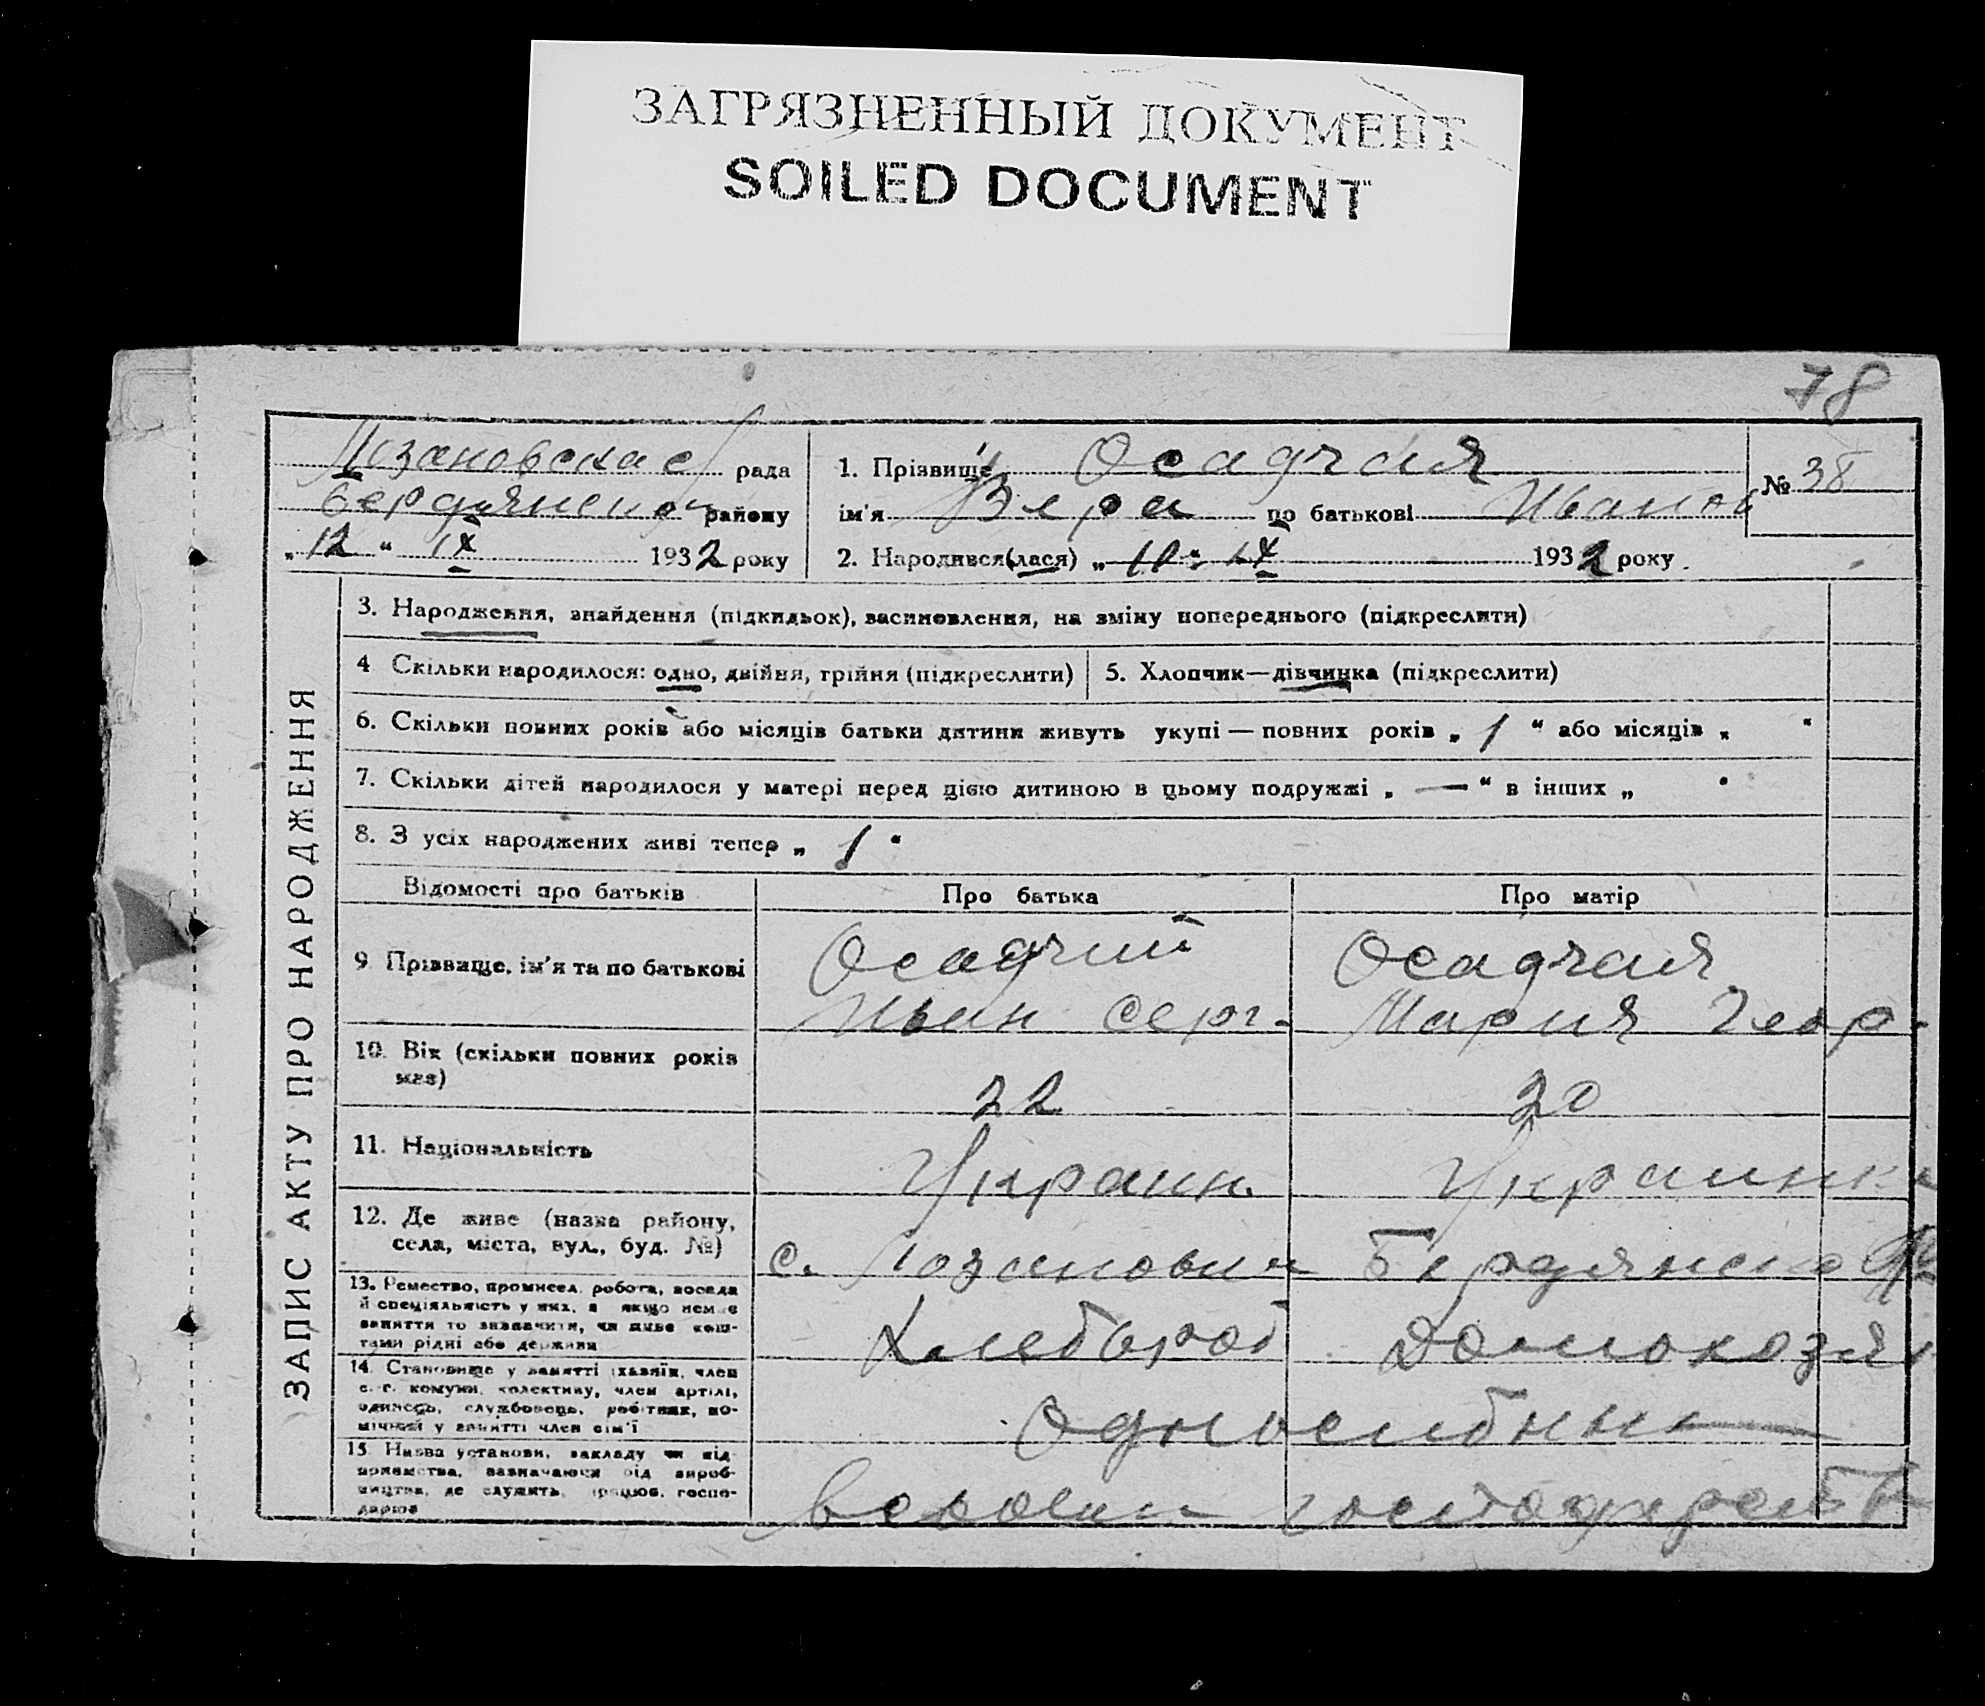 ЗАГРЯЗНЕННЫЙ ДОКУМЕНТ
SOILED DOCUMENT
78
Лозановская рада
Бердянского району
„ 12 “ IX 1932 року
1. Прізвище Осадчая
ім'я Вера по батькові Иванов
№ 38
2. Народився(лася) „ 10 “ IX 1932 року
ЗАПИС АКТУ ПРО НАРОДЖЕННЯ
3. Народження, знайдення (підкидьок), всиновлення, на зміну попереднього (підкреслити)
4 Скільки народилося: одно, двійня, трійня (підкреслити)
5. Хлопчик—дівчинка (підкреслити)
6. Скільки повних років або місяців батьки дитини живуть укупі — повних років „ 1 “ або місяців „ “
7. Скільки дітей народилося у матері перед цією дитиною в цьому подружжі „ — “ в інших „ “
8. З усіх народжених живі тепер „ 1 “
Відомості про батьків Про батька Про матір
9 Прізвище, ім'я та по батькові
Осадчий Осадчая
Иван Серг. Мария Геор.
10. Вік (скільки повних років
має)
22 20
11. Національність
Украин. Украинка
12. Де живе (назва району,
села, міста, вул., буд. №)
с. Лозановки Бердянского
13. Ремество, промисел, робота, посада
й спеціяльність у них, а якщо немає
заняття то зазначити, чи живе кош-
тами рідні або держави
Хлебороб Домохозяй
14. Становище у занятті (хазяїн, член
с.-г. комуни, колективу, член артілі,
одинець, службовець, робітник, по-
мічний у занятті член сім'ї
Одноосибник
15. Назва установи, закладу чи під-
приємства, зазначаючи рід вироб-
ництва, де служить, працює, госпо-
дарює